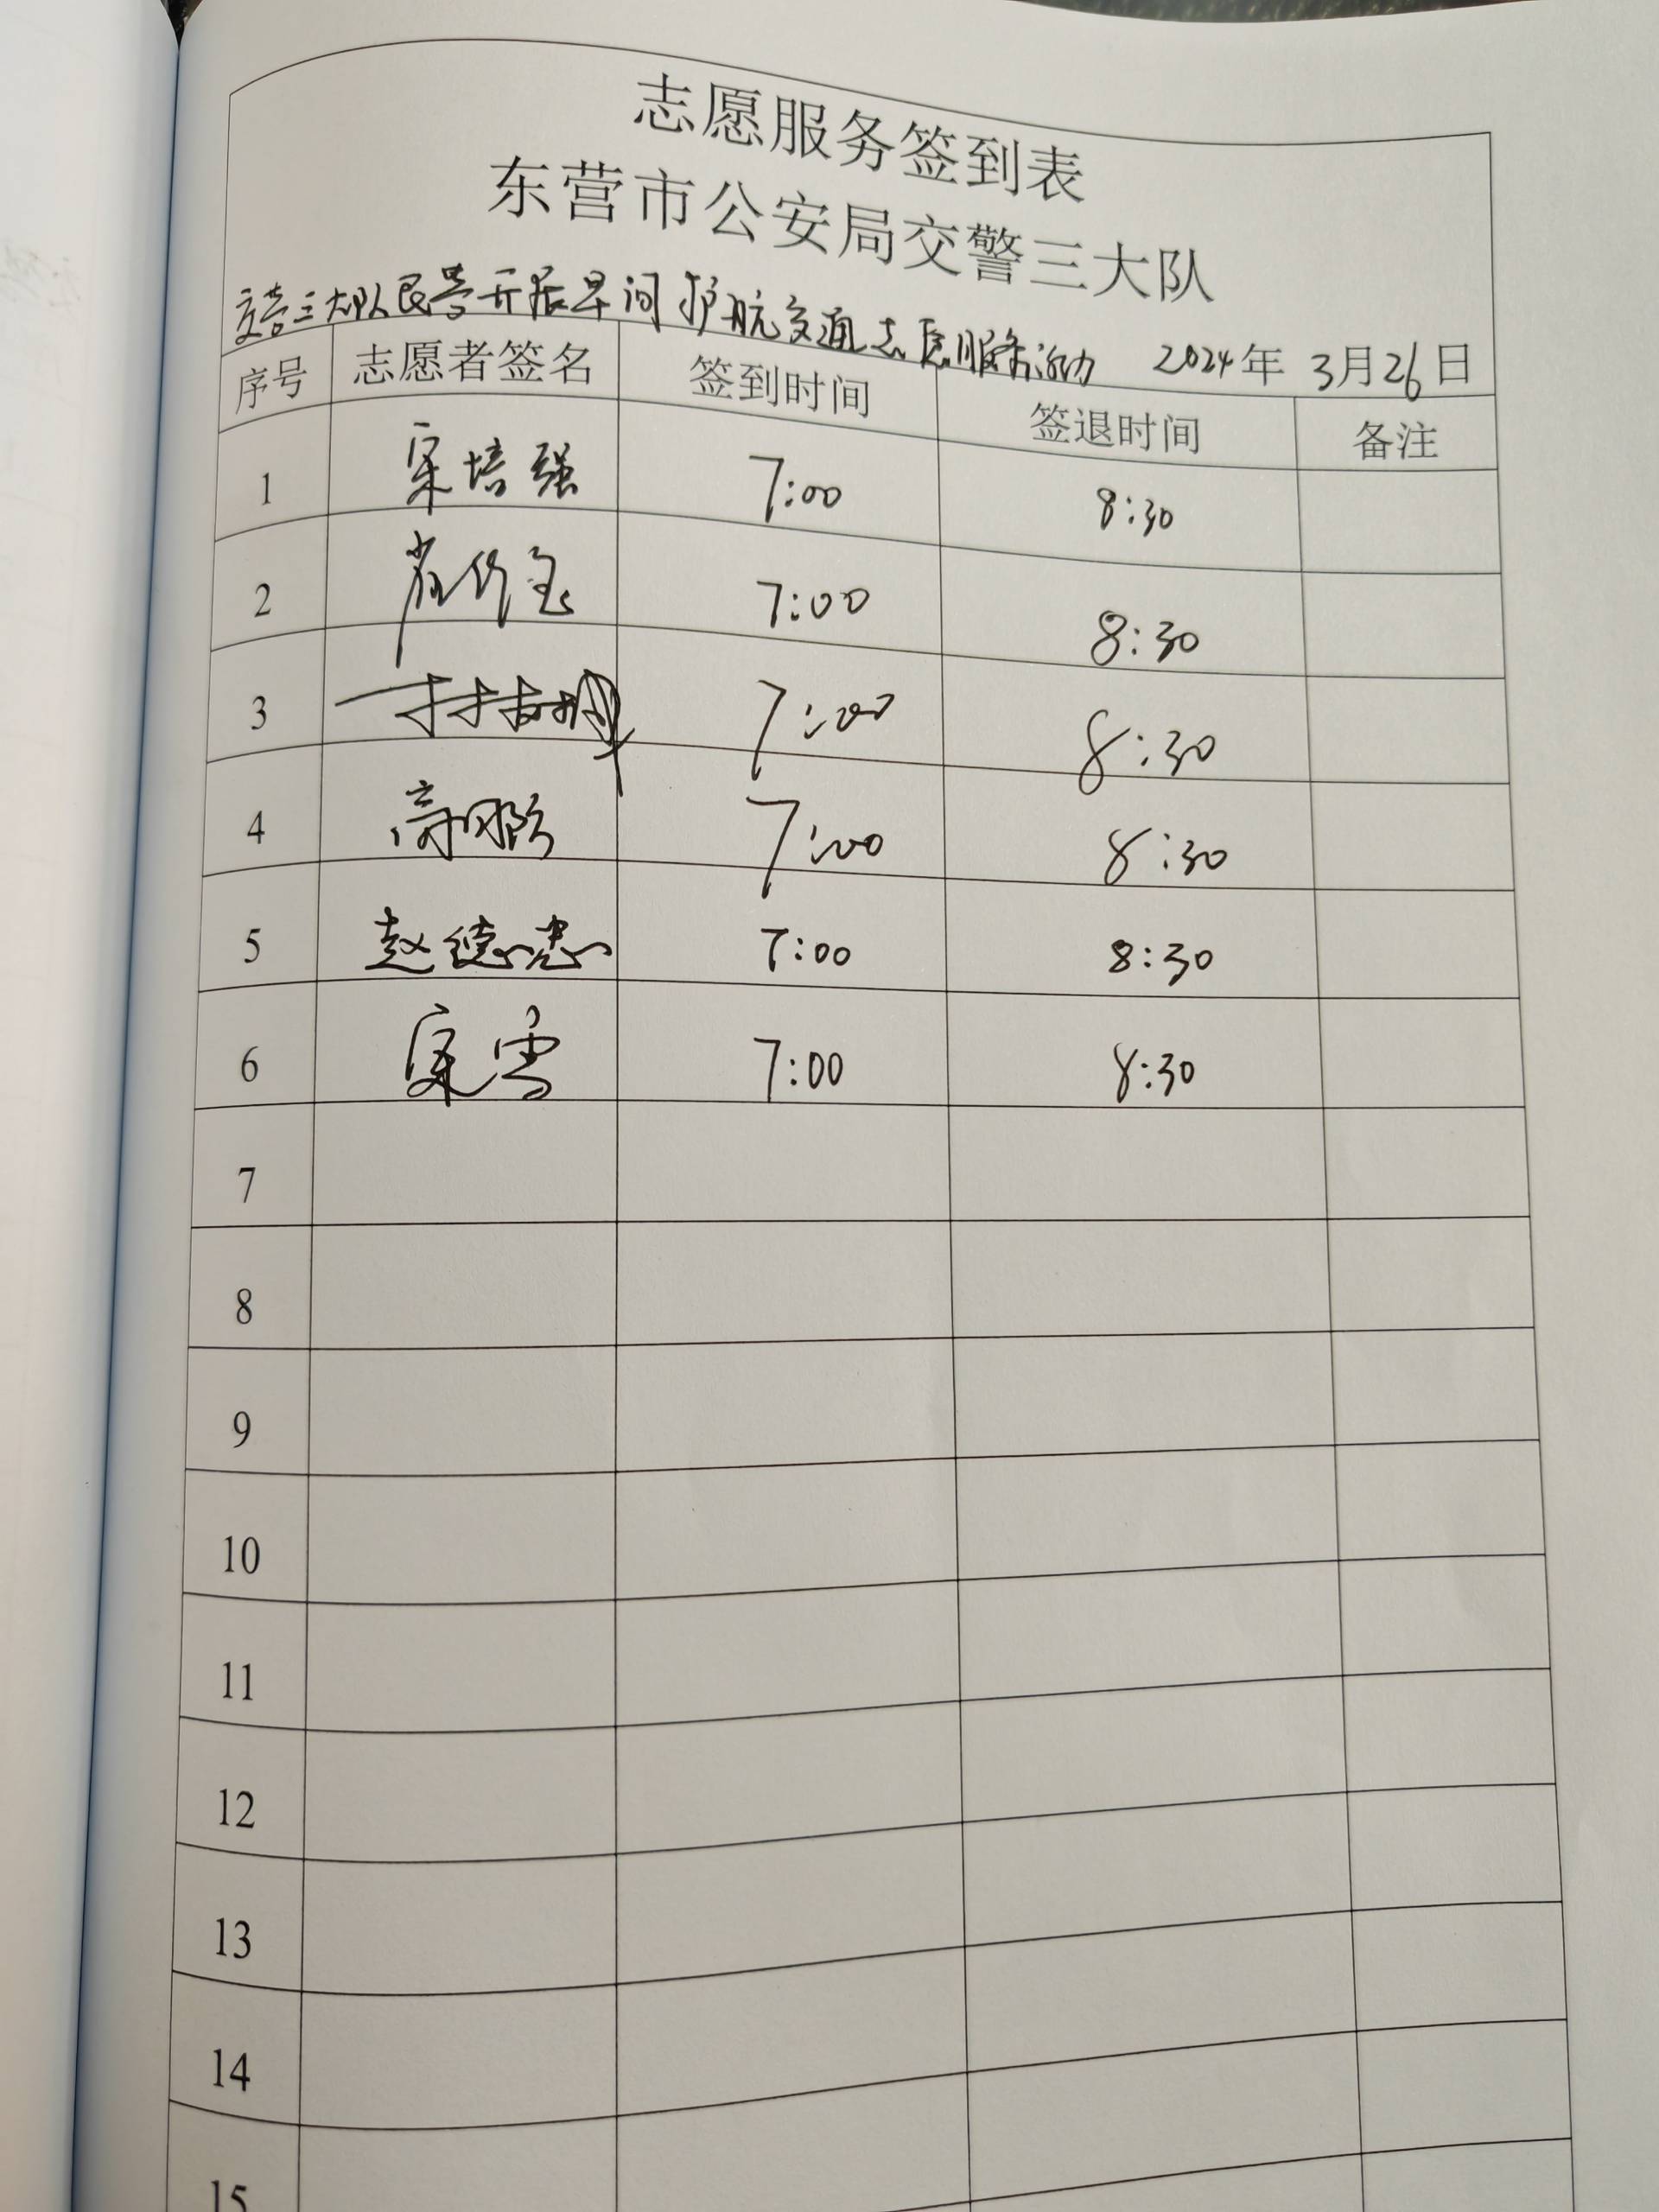 志愿服务签到表
东营市公安局交警三大队
交警三大队民警开展早间护航交通志愿服务活动 2024年 3月26日
序号 志愿者签名 签到时间 签退时间 备注
1 宋培强 7:00 8:30
2 7:00 8:30
3 7:00 8:30
4 高 7:00 8:30
5 赵德忠 7:00 8:30
6 宋雪 7:00 8:30
7
8
9
10
11
12
13
14
15